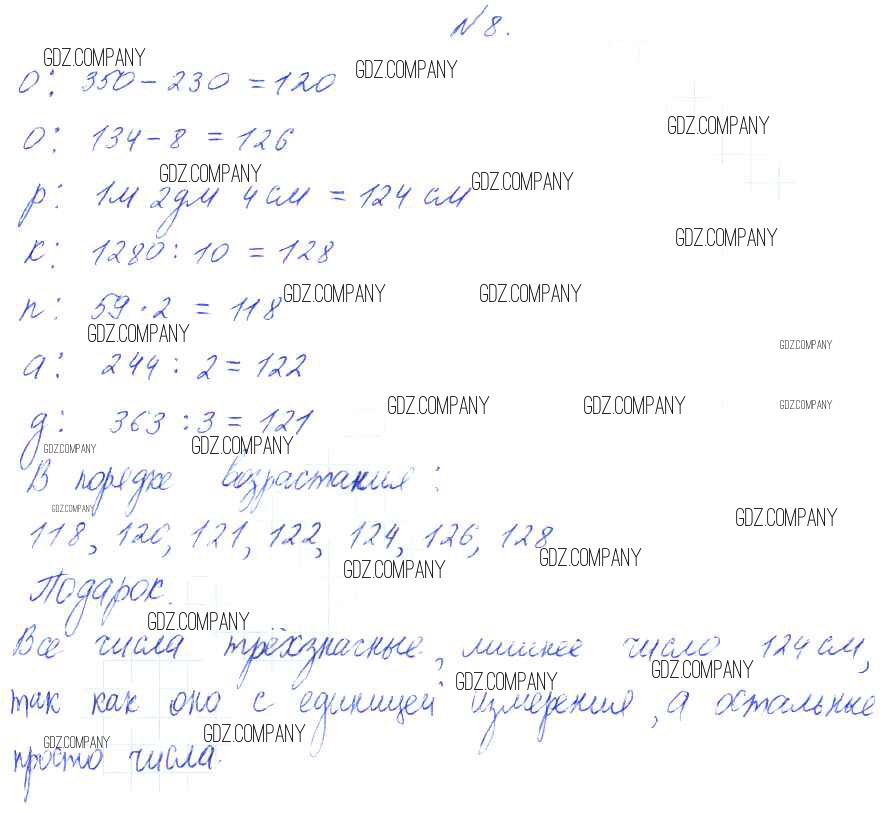 № 8.
GDZ.COMPANY
о: 350 - 230 = 120
GDZ.COMPANY
GDZ.COMPANY
о: 134 - 8 = 126
GDZ.COMPANY
GDZ.COMPANY
р: 1м 2дм 4 см = 124 см
GDZ.COMPANY
к: 1280 : 10 = 128
GDZ.COMPANY
GDZ.COMPANY
п: 59 · 2 = 118
GDZ.COMPANY
GDZ.COMPANY
а: 244 : 2 = 122
GDZ.COMPANY
GDZ.COMPANY
GDZ.COMPANY
д: 363 : 3 = 121
GDZ.COMPANY
GDZ.COMPANY
В порядке возрастания:
GDZ.COMPANY
GDZ.COMPANY
118, 120, 121, 122, 124, 126, 128
GDZ.COMPANY
GDZ.COMPANY
Подарок.
GDZ.COMPANY
Все числа трёхзначные, лишнее число 124 см,
GDZ.COMPANY
GDZ.COMPANY
так как оно с единицей измерения, а остальные
GDZ.COMPANY
GDZ.COMPANY
просто числа.